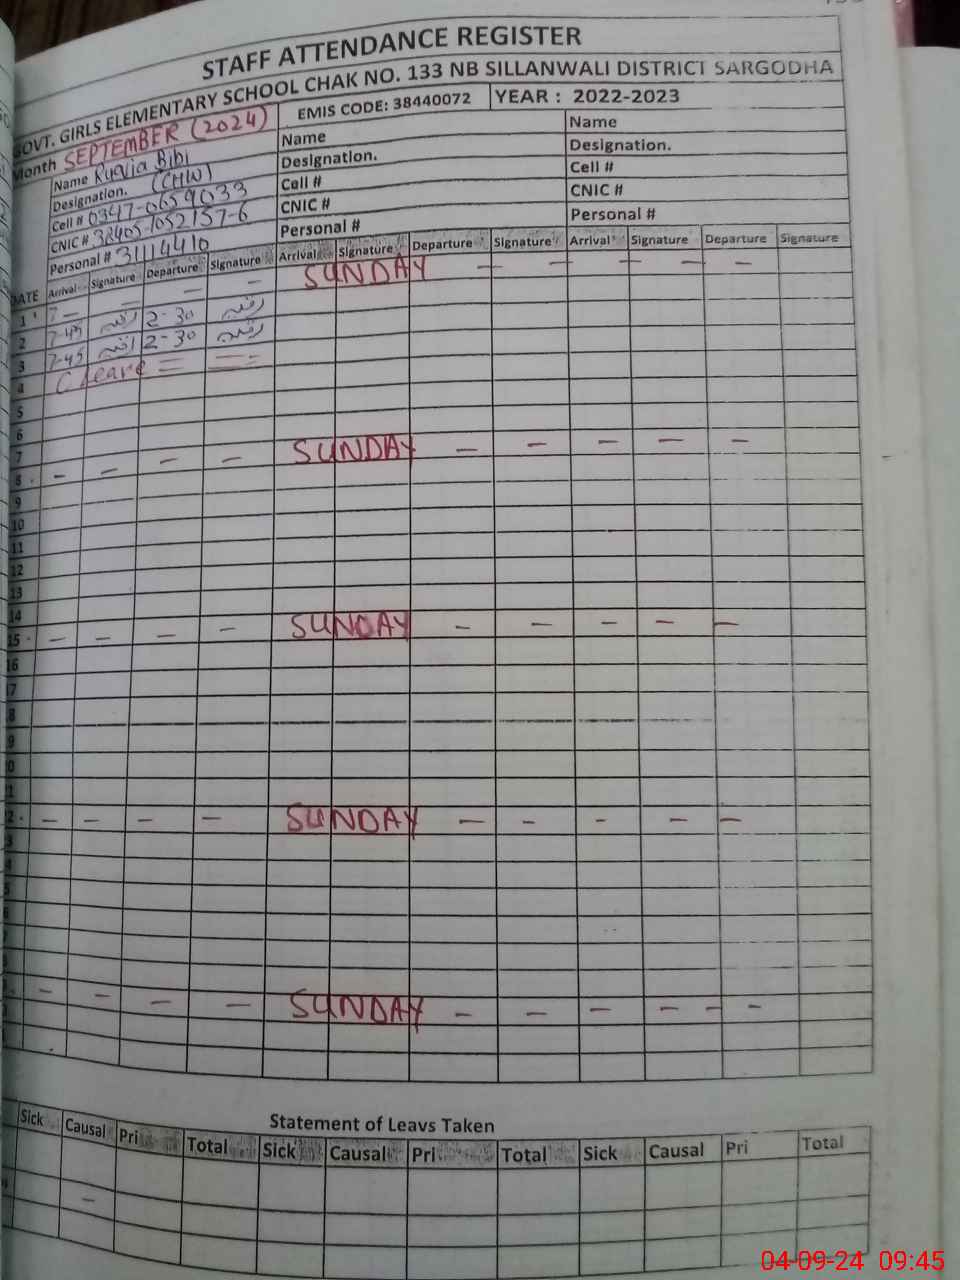 STAFF ATTENDANCE REGISTER
GOVT. GIRLS ELEMENTARY SCHOOL CHAK NO. 133 NB SILLANWALI DISTRICT SARGODHA
Month SEPTEMBER (2024) EMIS CODE: 38440072 YEAR : 2022-2023
Name Bibi Name Name
Designation. (CHW) Designation. Designation.
Cell # 0347-0659033 Cell # Cell #
CNIC # 38405-1052157-6 CNIC # CNIC #
Personal # 31114410 Personal # Personal #
DATE Arrival Signature Departure Signature Arrival Signature Departure Signature Arrival Signature Departure Signature
1 — — — SUNDAY — — — — —
2 7-45 2-30
3 7-45 2-30
4 C leave = =
5
6
7
8 — — — — SUNDAY — — — — —
9
10
11
12
13
14
15 — — — — SUNDAY — — — — —
16
17
8
9
0
1
2 — — — — SUNDAY — — — — —
3
4
5
6
— — — — SUNDAY — — — — — —
Statement of Leavs Taken
Sick Causal Pri Total Sick Causal Pri Total Sick Causal Pri Total
—
04-09-24 09:45